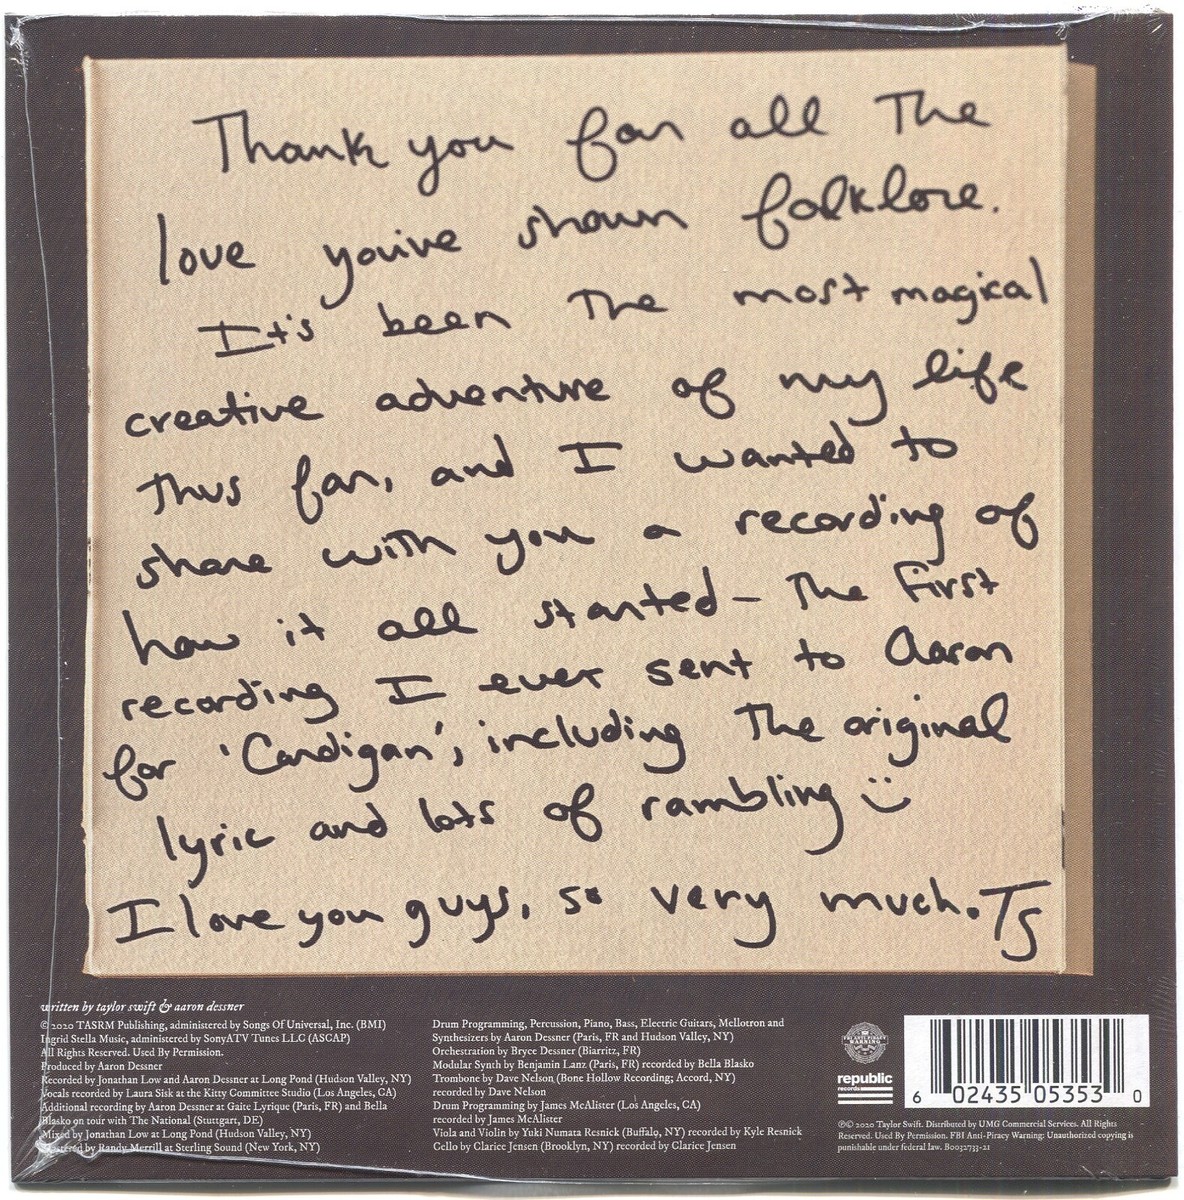 Thank you for all the
love you've shown folklore.
It's been the most magical
creative adventure of my life
thus far, and I wanted to
share with you a recording of
how it all started - the first
recording I ever sent to Aaron
for 'Cardigan', including the original
lyric and lots of rambling :)
I love you guys, so very much. TS
written by taylor swift & aaron dessner
©2020 TASRM Publishing, administered by Songs Of Universal, Inc. (BMI)
Ingrid Stella Music, administered by SonyATV Tunes LLC (ASCAP)
All Rights Reserved. Used By Permission.
Produced by Aaron Dessner
Recorded by Jonathan Low and Aaron Dessner at Long Pond (Hudson Valley, NY)
Vocals recorded by Laura Sisk at the Kitty Committee Studio (Los Angeles, CA)
Additional recording by Aaron Dessner at Gaite Lyrique (Paris, FR) and Bella
Blasko on tour with The National (Stuttgart, DE)
Mixed by Jonathan Low at Long Pond (Hudson Valley, NY)
Mastered by Randy Merrill at Sterling Sound (New York, NY)
Drum Programming, Percussion, Piano, Bass, Electric Guitars, Mellotron and
Synthesizers by Aaron Dessner (Paris, FR and Hudson Valley, NY)
Orchestration by Bryce Dessner (Biarritz, FR)
Modular Synth by Benjamin Lanz (Paris, FR) recorded by Bella Blasko
Trombone by Dave Nelson (Bone Hollow Recording; Accord, NY)
recorded by Dave Nelson
Drum Programming by James McAlister (Los Angeles, CA)
recorded by James McAlister
Viola and Violin by Yuki Numata Resnick (Buffalo, NY) recorded by Kyle Resnick
Cello by Clarice Jensen (Brooklyn, NY) recorded by Clarice Jensen
FBI ANTI-PIRACY
WARNING
republic
records
6 02435 05353 0
℗© 2020 Taylor Swift. Distributed by UMG Commercial Services. All Rights
Reserved. Used By Permission. FBI Anti-Piracy Warning: Unauthorized copying is
punishable under federal law. B0032733-21